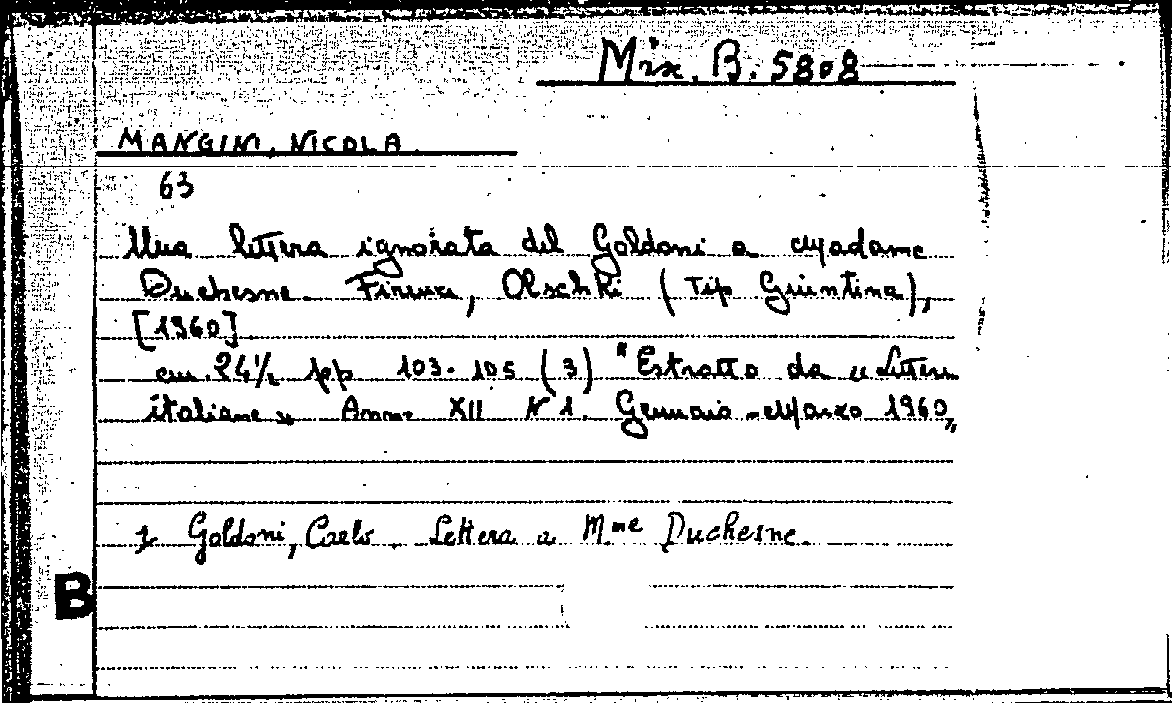 Mix. B. 5808
MANGINI, NICOLA.
63
Una lettera ignorata del Goldoni a Madame
Duchesne. Firenze, Olschki (Tip Giuntina),
[1960]
cm. 24½ pp 103-105 (3) "Estratto da «Lettere
italiane» Anno XII N 1. Gennaio-Marzo 1960"
1 Goldoni, Carlo. Lettera a Mme Duchesne.
B